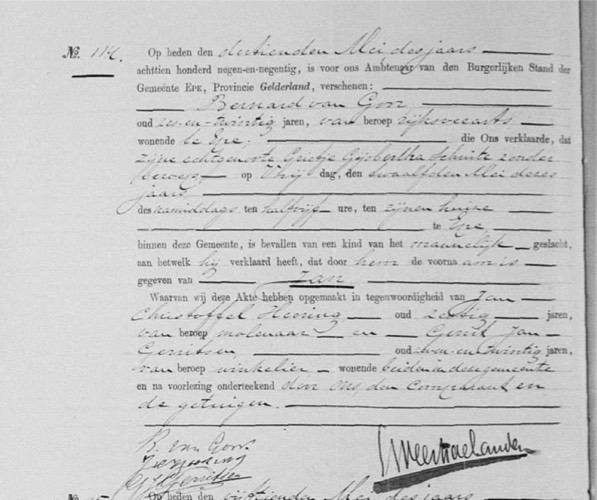 No. 114.
Op heden den dertienden Mei des jaars
achttien honderd negen-en-negentig, is voor ons Ambtenaar van den Burgerlijken Stand der
Gemeente EPE, Provincie Gelderland, verschenen:
Bernard van Goor
oud zes-en-twintig jaren, van beroep rijksveearts
wonende te Epe, die Ons verklaarde, dat
zijne echtgenoote Grietje Gijsbertha Schuite zonder
beroep op Vrijdag, den twaalfden Mei dezes
jaars
des namiddags ten half vijf ure, ten zijnen huize
te Epe
binnen deze Gemeente, is bevallen van een kind van het mannelijk geslacht,
aan hetwelk hij verklaard heeft, dat door hem de voornaam is
gegeven van Jan
Waarvan wij deze Akte hebben opgemaakt in tegenwoordigheid van Jan
Christoffel Hessing oud zestig jaren,
van beroep molenaar en Gerrit Jan
Gerritsen oud een-en-twintig jaren,
van beroep winkelier wonende beiden in deze gemeente
en na voorlezing onderteekend door ons, den comparant en
de getuigen.
B. van Goor
Weerts
Op heden den Mei des jaars